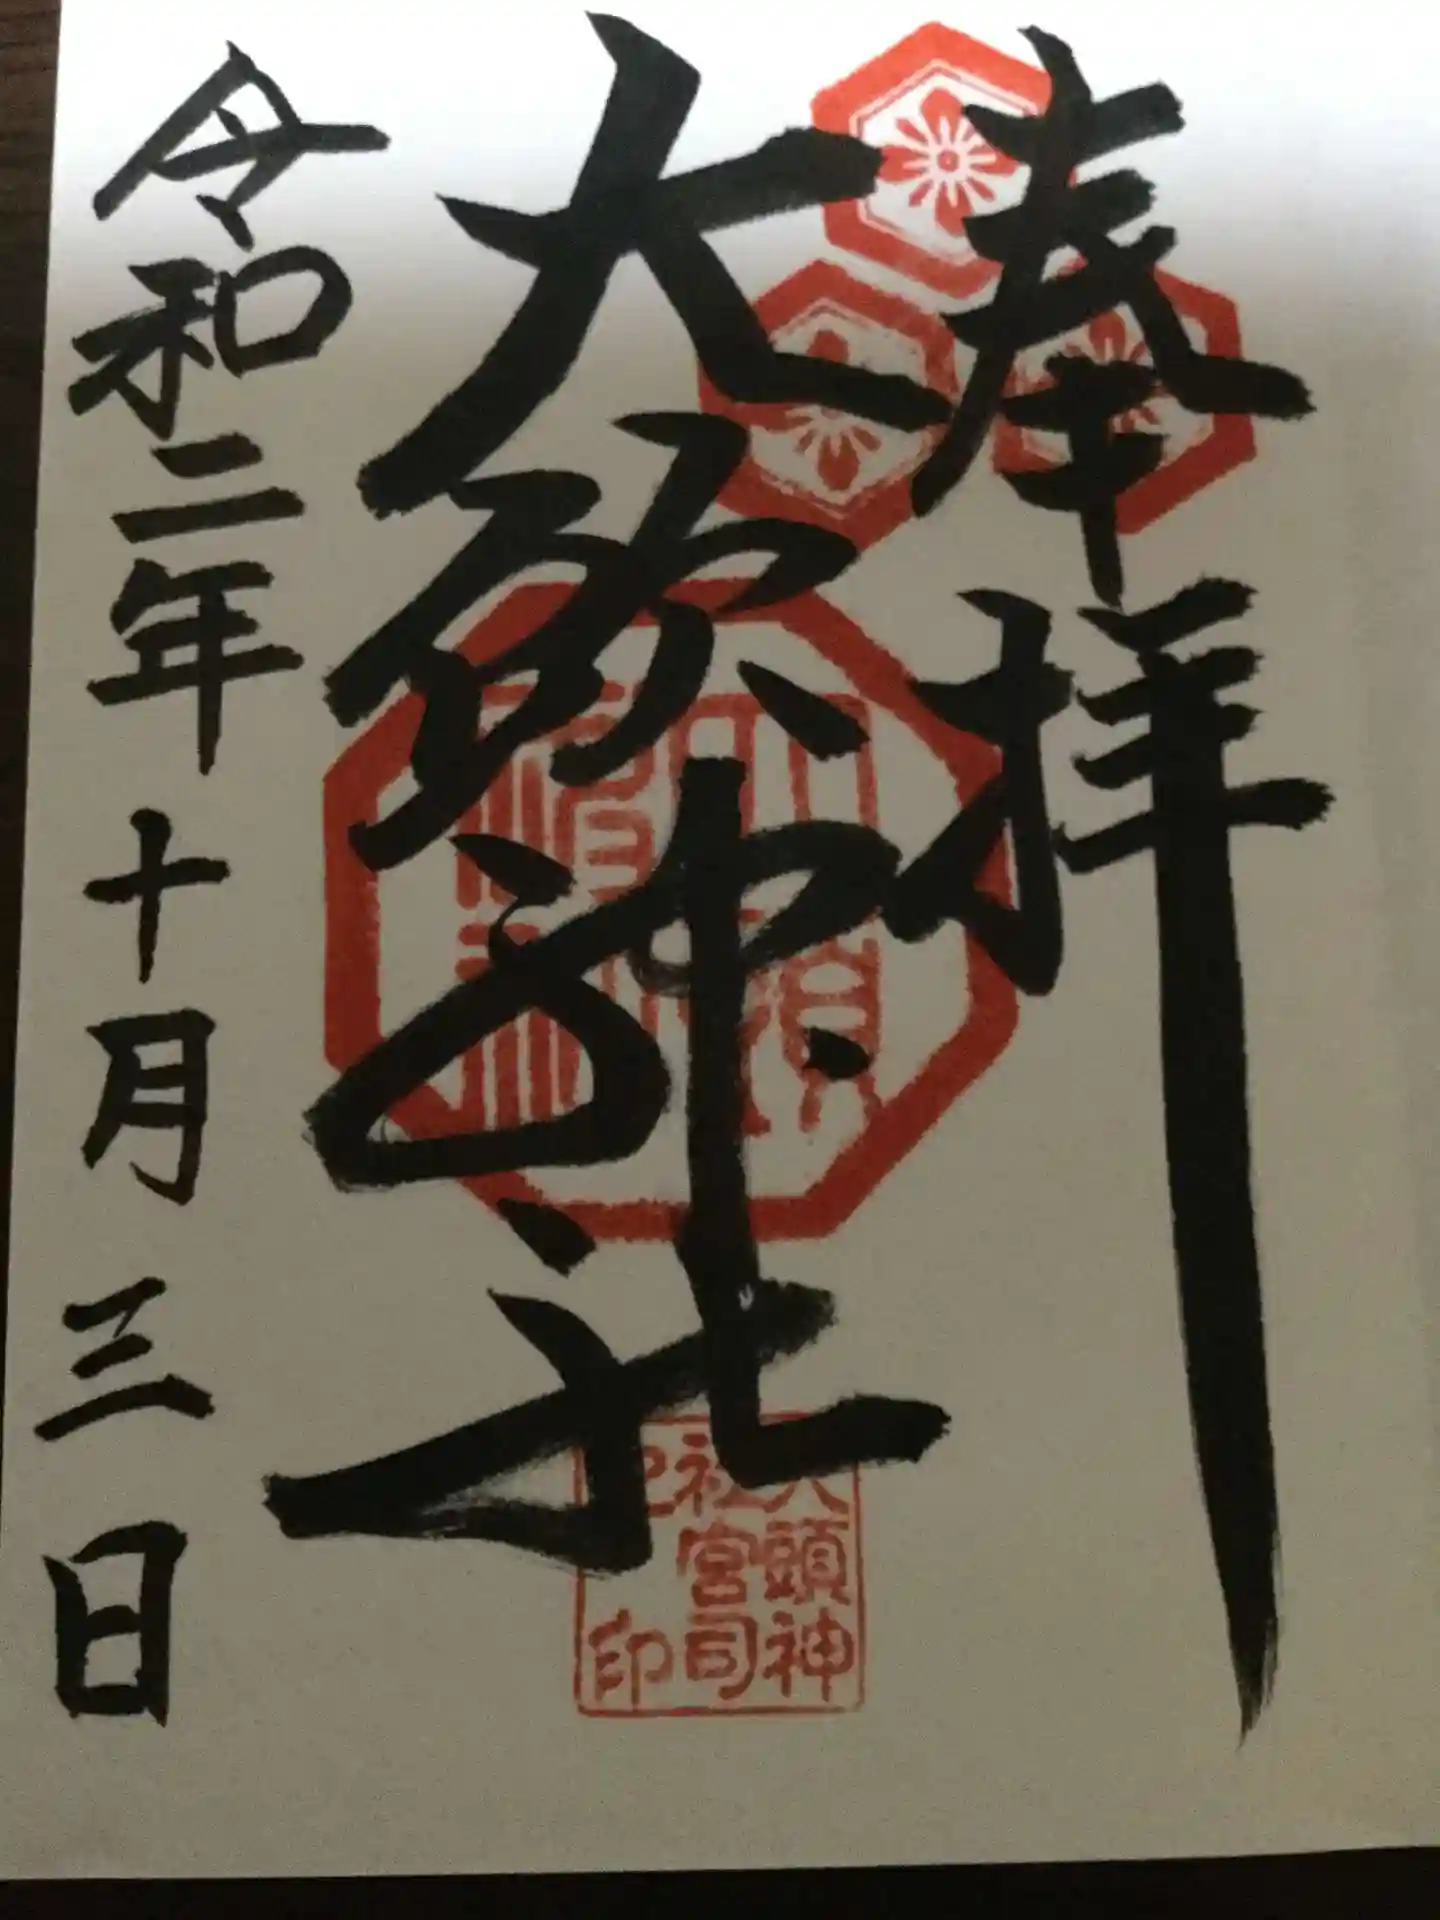 奉拝
大頭神社
令和二年十月三日
大頭神
社宮司
印